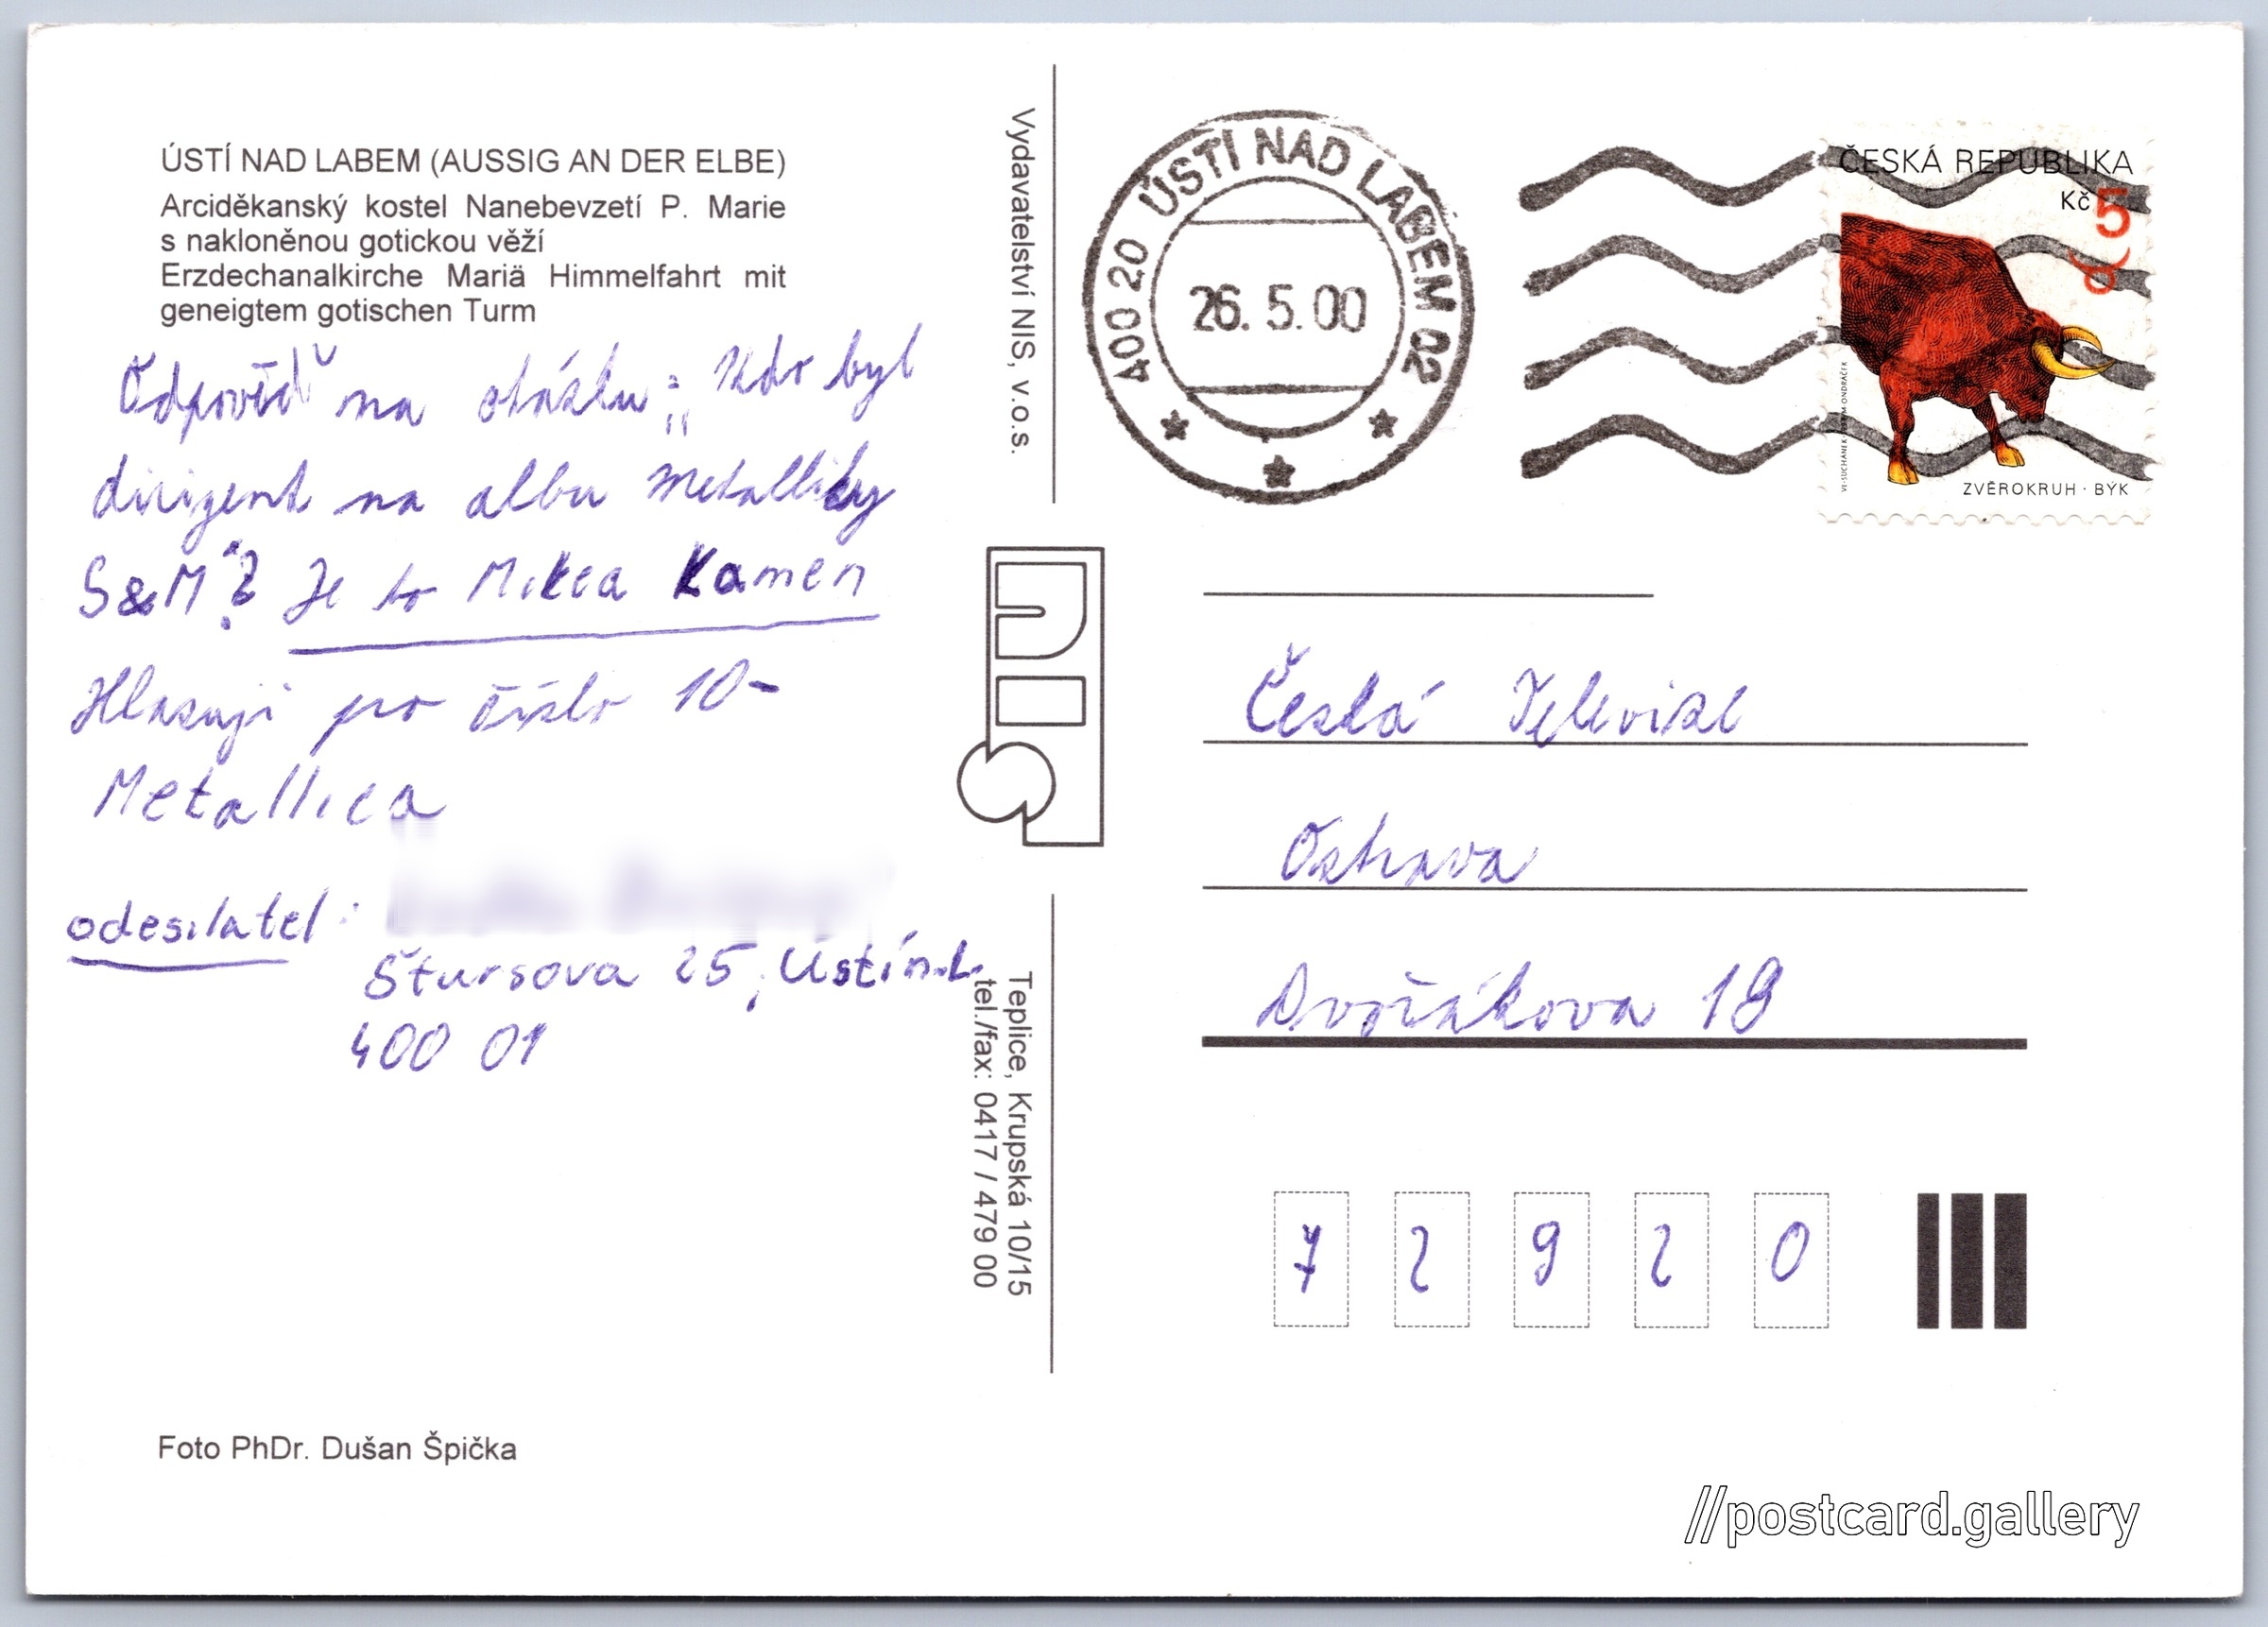 ÚSTÍ NAD LABEM (AUSSIG AN DER ELBE)
Arciděkanský kostel Nanebevzetí P. Marie
s nakloněnou gotickou věží
Erzdechanalkirche Mariä Himmelfahrt mit
geneigtem gotischen Turm
Odpověď na otázku: „Kdo byl
dirigent na albu Metallicy
S&M"? Je to Mikea Kamen
Hlasuji pro číslo 10-
Metallica
odesilatel:
Štursova 25, Ústí n.L.
400 01
Foto PhDr. Dušan Špička
Vydavatelství NIS, v.o.s.
Teplice, Krupská 10/15
tel./fax: 0417 / 479 00
400 20 ÚSTÍ NAD LABEM 02
26. 5. 00
ČESKÁ REPUBLIKA
Kč 5
ZVĚROKRUH · BÝK
Česká Televize
Ostrava
Dvořákova 18
7 2 9 2 0
//postcard.gallery